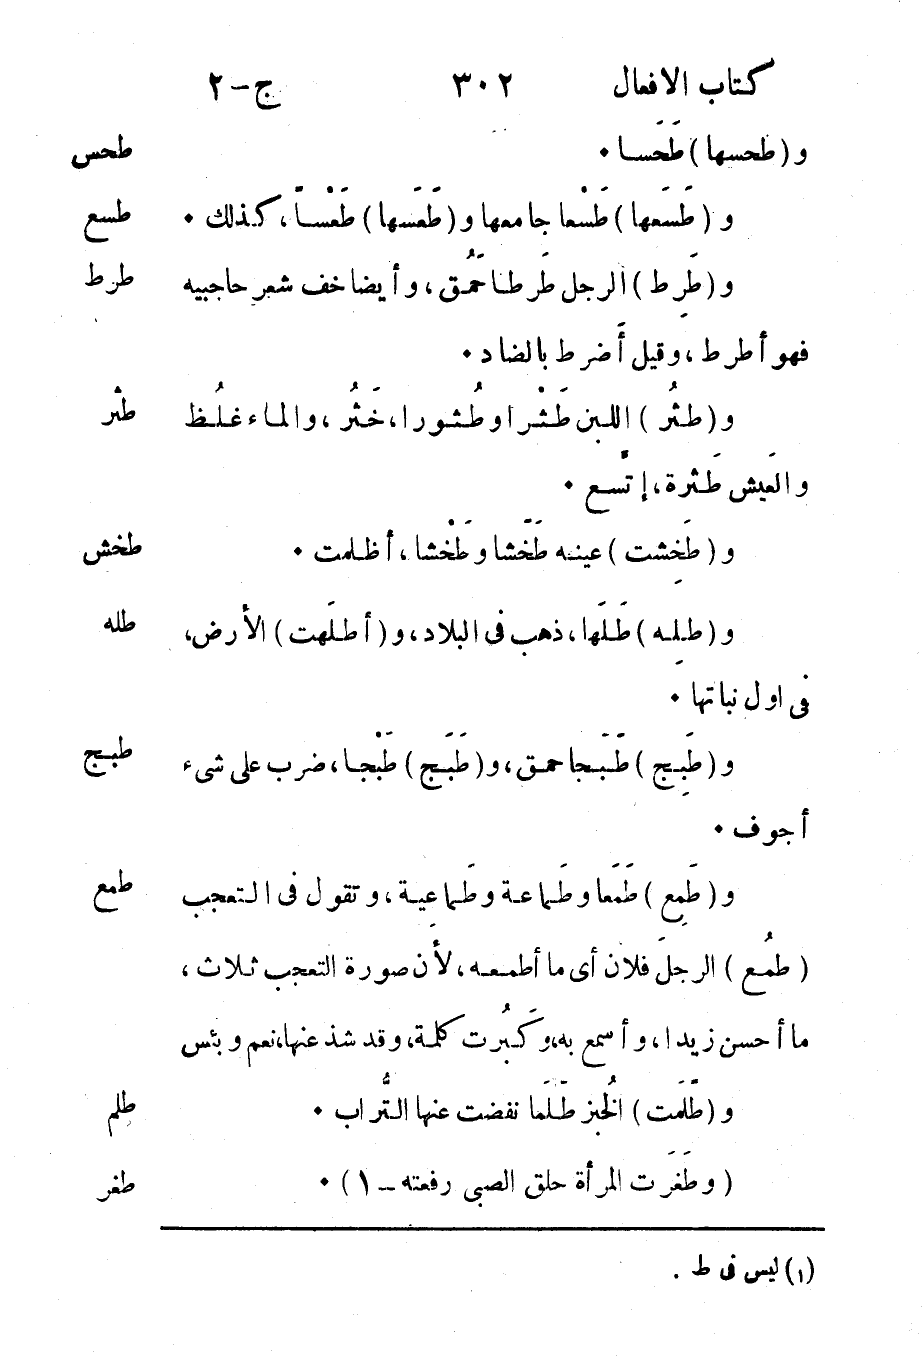 كتاب الافعال ٣٠٢ ج-٢
و (طحسها) طَحَسا • طحس
و (طَسَعها) طَسْعا جامعها و (طَعَسها) طَعْساً، كذلك • طسع
و (طَرِط) الرجل طَرطا حَمُق، وأيضا خف شعر حاجبيه طرط
فهو أطرط، وقيل أَضرط بالضاد •
و (طثُر) اللبن طَثْرا وطُثورا، خَثُر، والماء غلُظ طثر
والعَيش طَثرة، إتَّسع •
و (طَخِشت) عينه طَخَشا وطَخْشا، أظلمت • طخش
و (طلِه) طَلَها، ذهب فى البلاد، و (أطلَهت) الأرض، طله
فى اول نباتها •
و (طَبِج) طَبَجا حمق، و (طَبَج) طَبْجا، ضرب على شىء طبج
أجوف •
و (طَمِع) طَمَعا وطَماعة وطَماعِية، وتقول فى التعجب طمع
(طمُع) الرجلَ فلان أى ما أطمعه، لأن صورة التعجب ثلاث،
ما أحسن زيدا، وأسمع به، وكَبُرت كلمة، وقد شذ عنها، نعم وبئس
و (طَلَمت) الخُبز طَلَما نفضت عنها التُّراب • طلم
(وطَفَرَت المرأة حلق الصبى رفعته - ١) • طفر
(١) ليس فى ط .